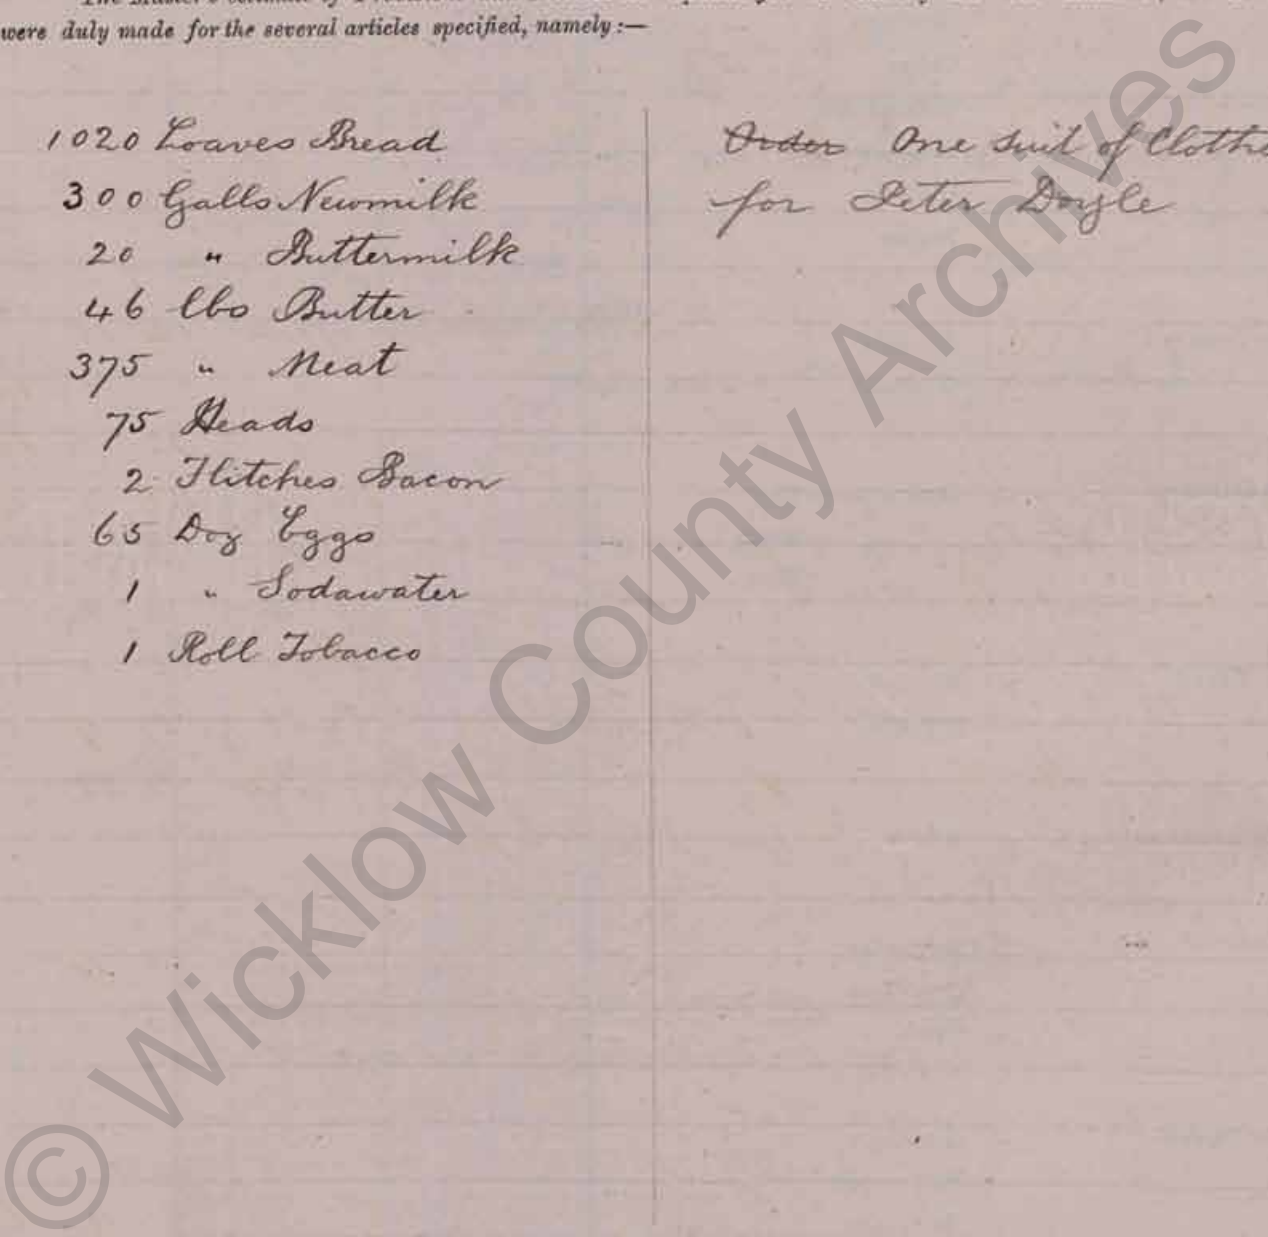 were duly made for the several articles specified, namely:—
1020 Loaves Bread
300 Galls Newmilk
20 " Buttermilk
46 lbs Butter
375 " Meat
75 Heads
2 Flitches Bacon
65 Doz Eggs
1 " Sodawater
1 Roll Tobacco
Order One suit of Clothe
for Peter Doyle
© Wicklow County Archives